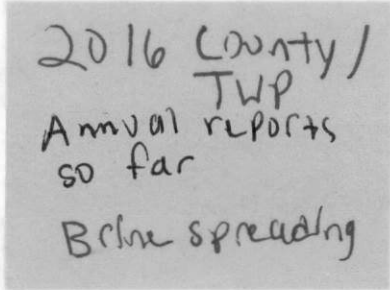 2016 County/
TWP
Annual reports
so far
Brine spreading